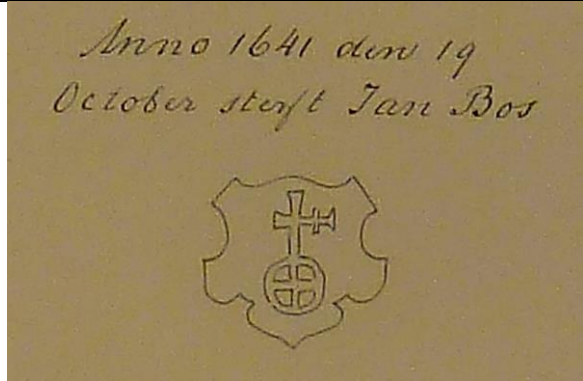 Anno 1641 den 19
October sterft Jan Bos